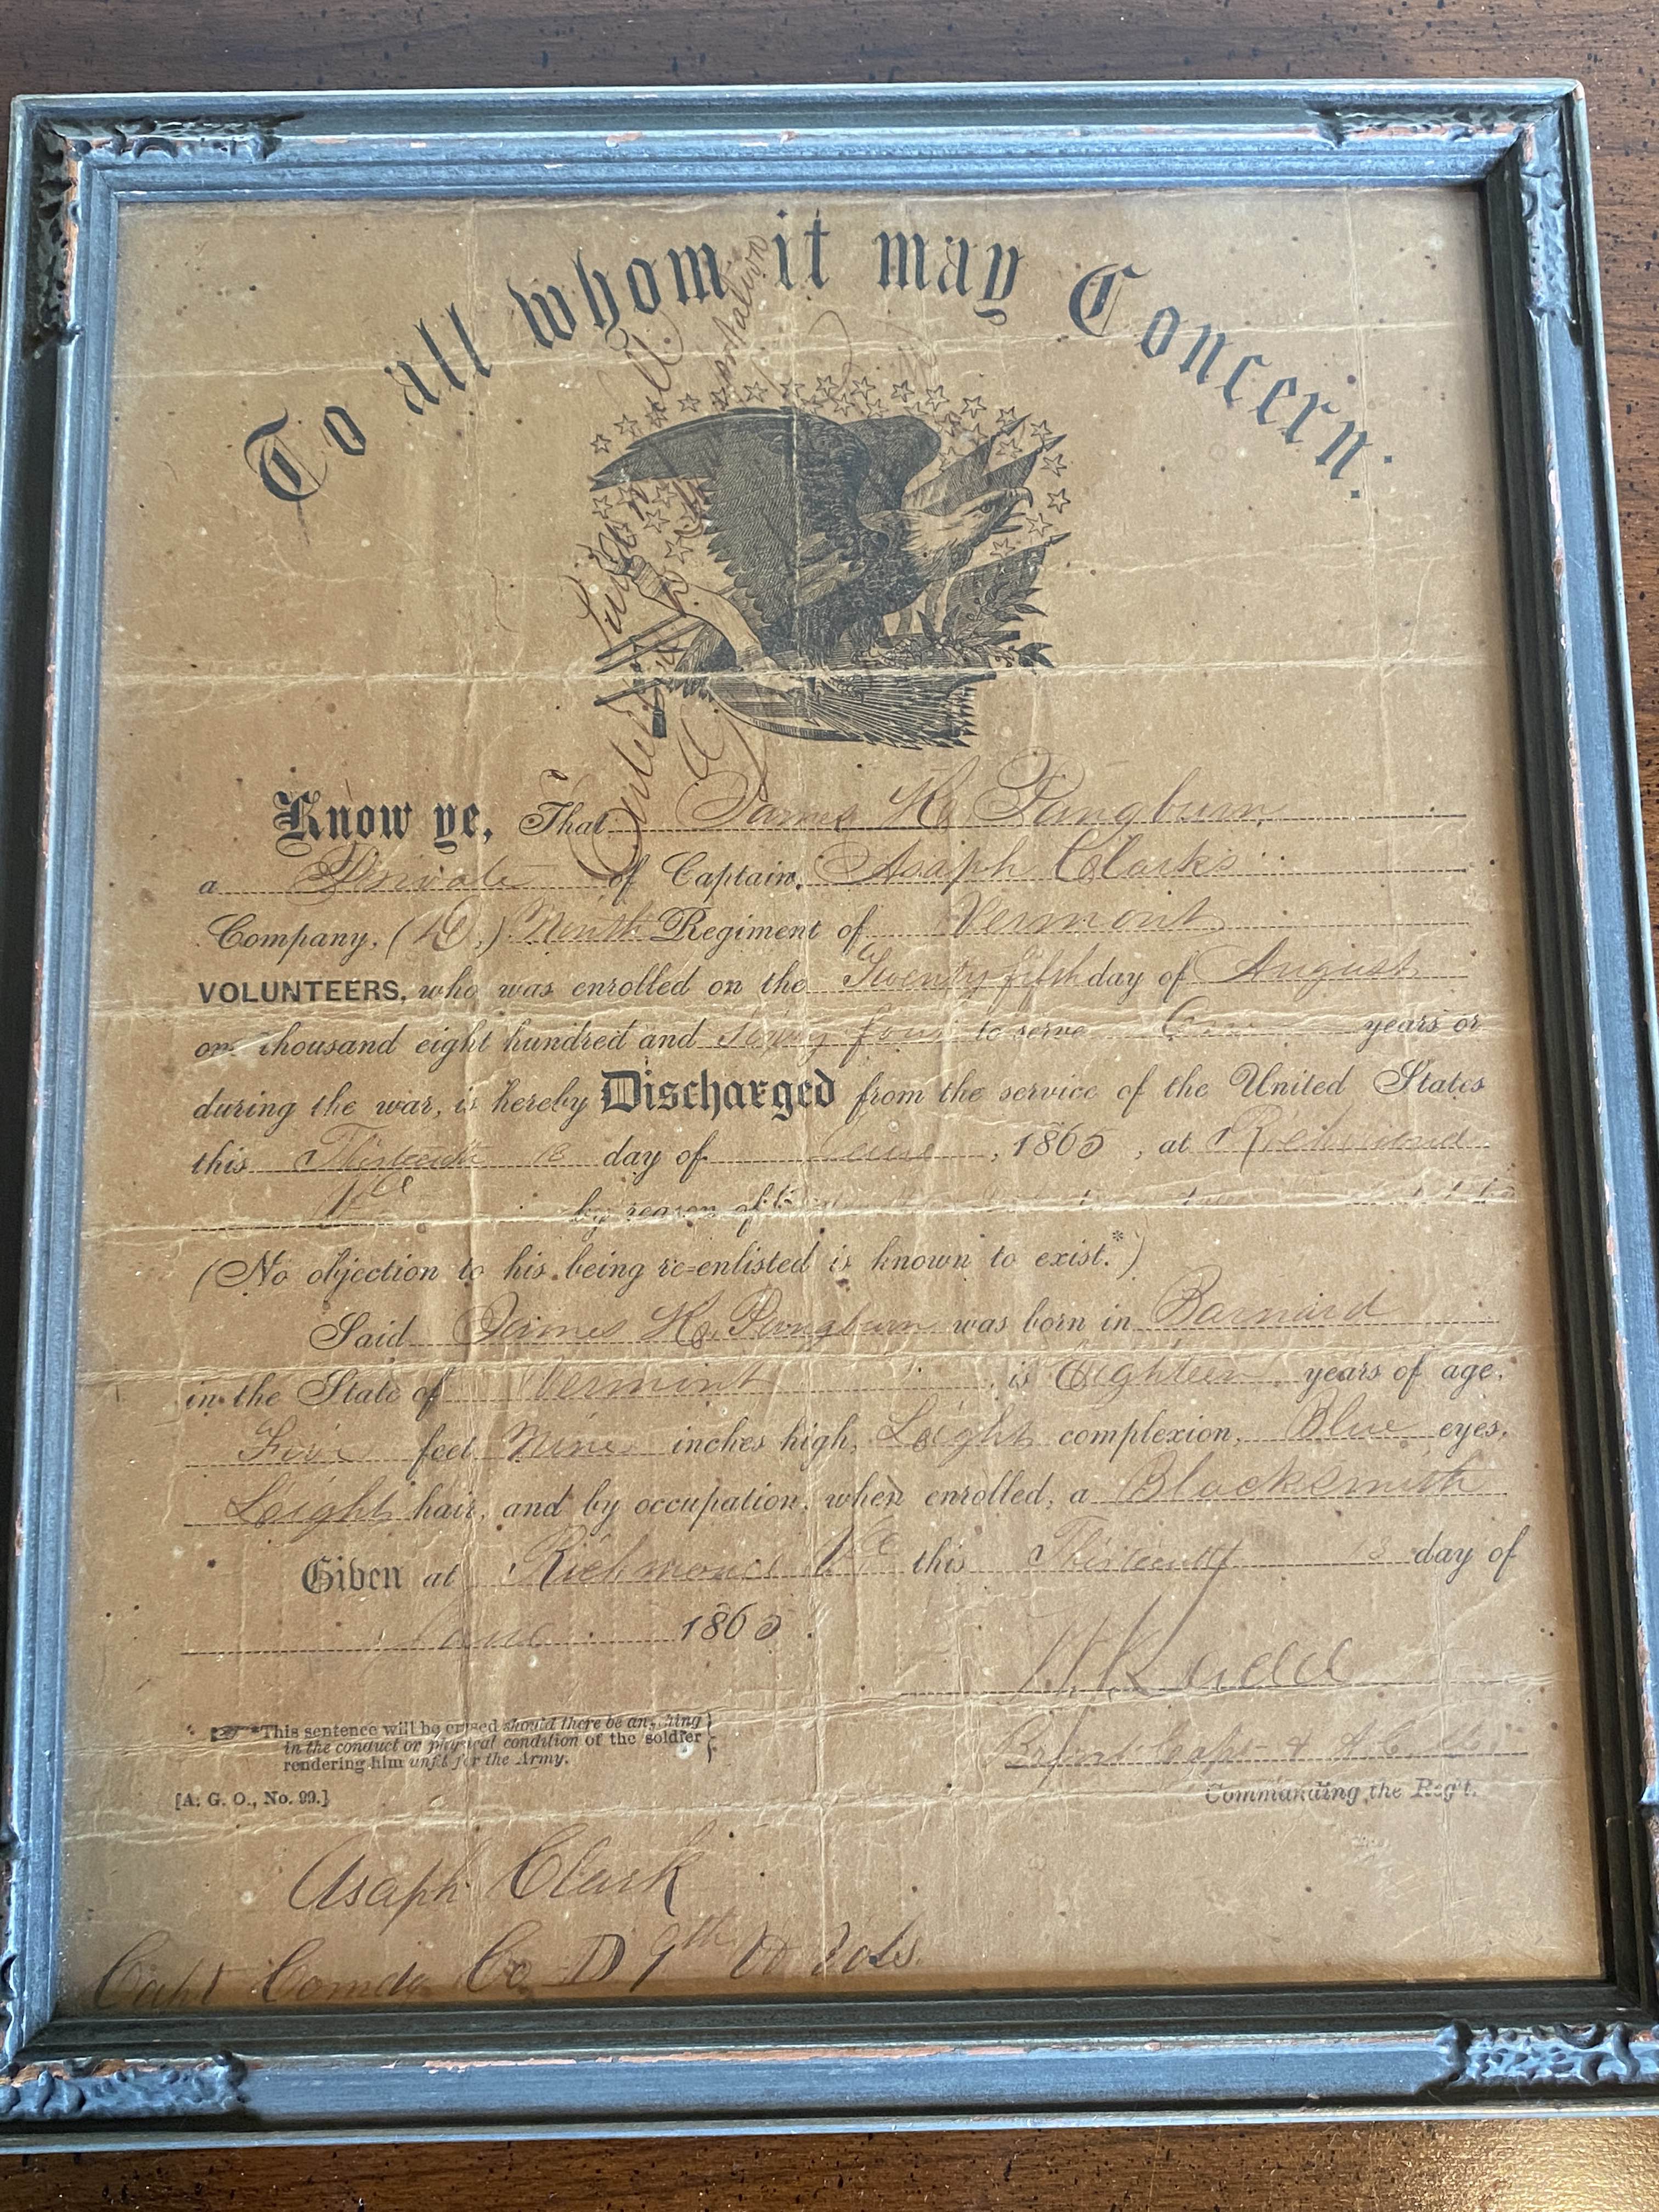 To all whom it may Concern.
Know ye, That James H. Pangburn,
a Private of Captain, Asaph Clarks
Company, (D,) Ninth Regiment of Vermont
VOLUNTEERS, who was enrolled on the Twenty fifth day of August
one thousand eight hundred and Sixty four to serve One years or
during the war, is hereby Discharged from the service of the United States
this Thirteenth 13 day of June, 1865, at Richmond
Va by reason of
(No objection to his being re-enlisted is known to exist.*)
Said James H. Pangburn was born in Barnard
in the State of Vermont, is Eighteen years of age,
Five feet Nine inches high, Light complexion, Blue eyes,
Light hair, and by occupation, when enrolled, a Blacksmith
Given at Richmond Va this Thirteenth 13 day of
June 1865.
*This sentence will be erased should there be anything
in the conduct or physical condition of the soldier
rendering him unfit for the Army.
[A. G. O., No. 99.]
Commanding the Reg't.
Asaph Clark
Capt Comdg Co D 9th Vt Vols.